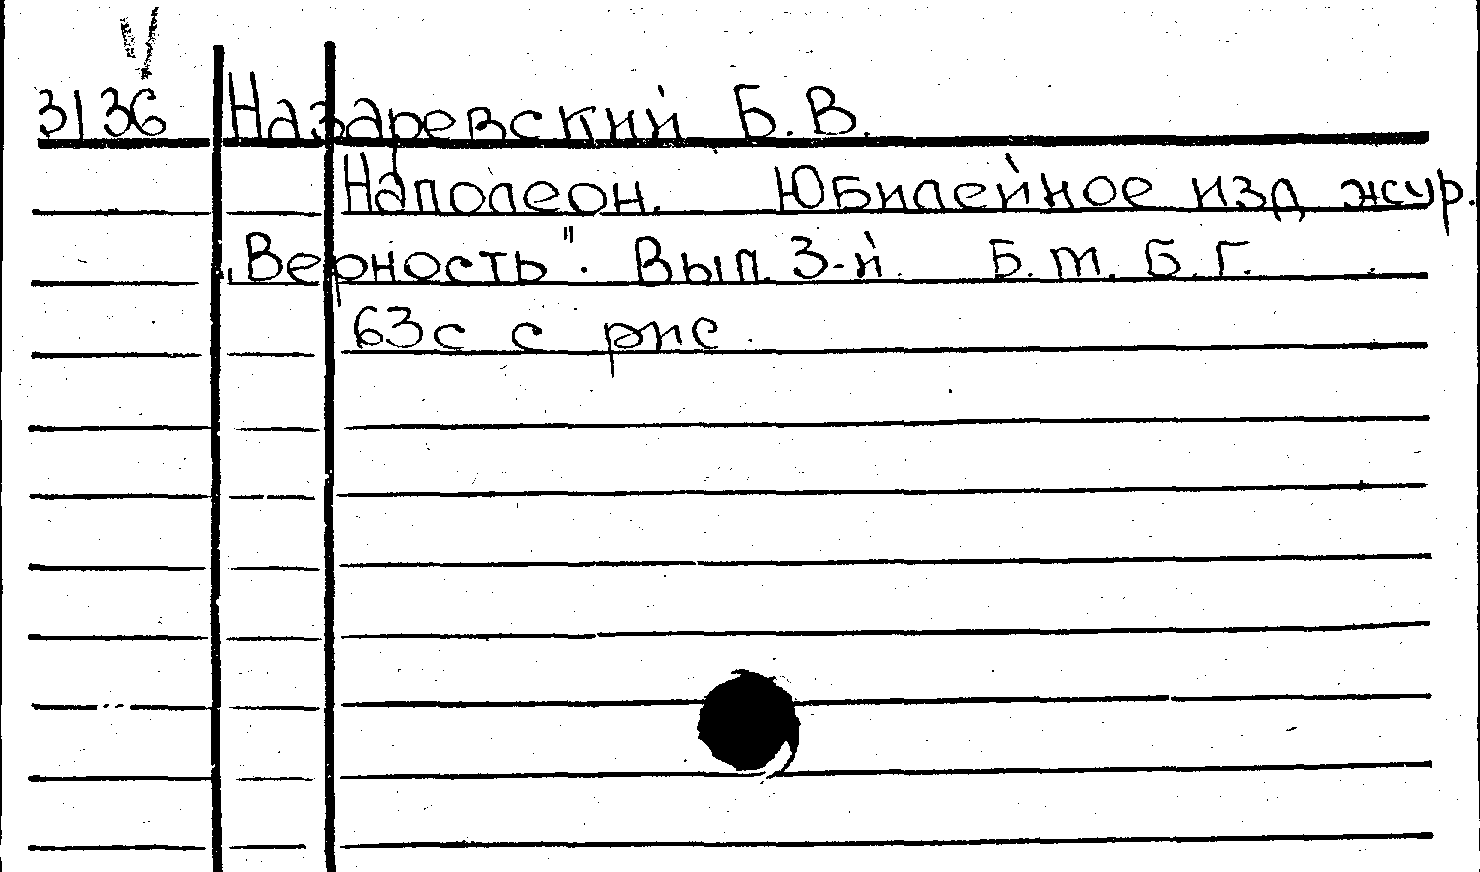 V
3136 Назаревский Б. В.
Наполеон. Юбилейное изд жур.
„Верность". Вып. 3-й. Б. т. Б. Г.
63с с рис.